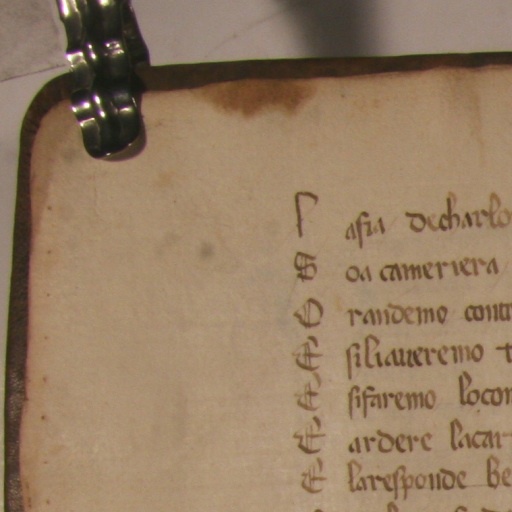 L asia decharlo
S oa cameriera
O randemo contr
E siliaueremo t
E sifaremo locon
E ardere lacar
E laresponde be